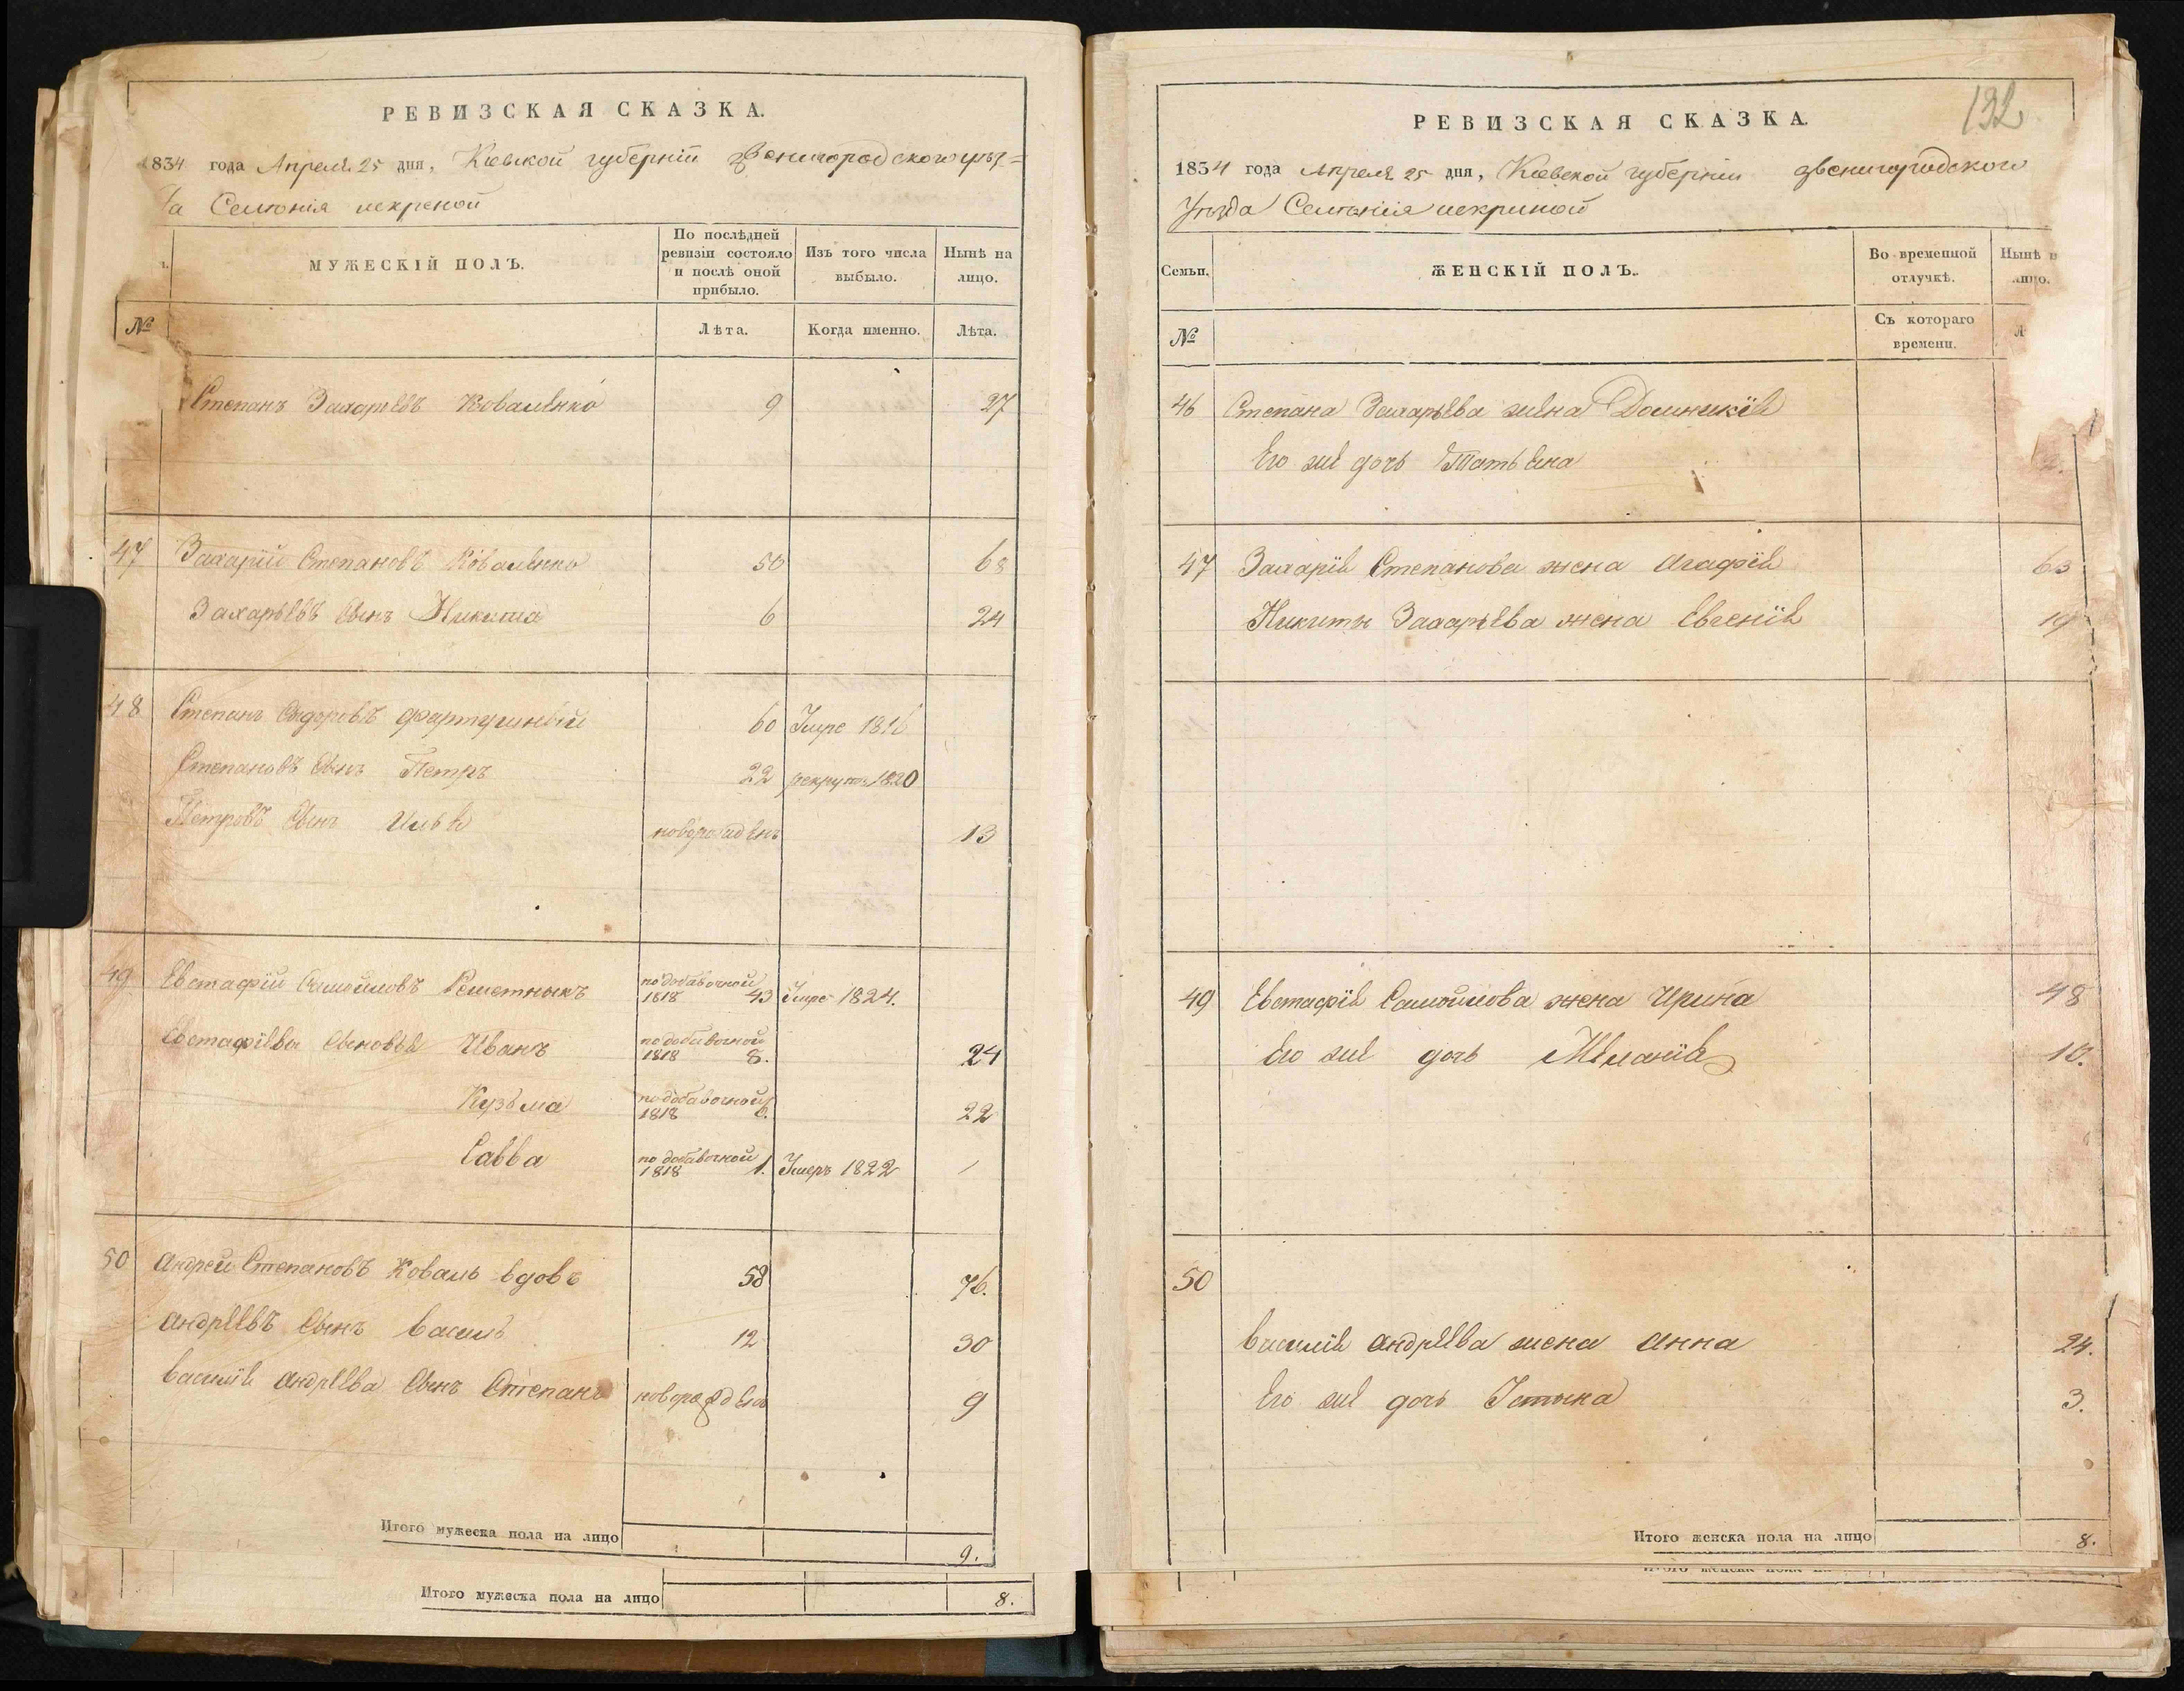 РЕВИЗСКАЯ СКАЗКА.
1834 года Апреля 25 дня, Кіевской губерніи Звенигородского уѣз=
да Селенія искреной
МУЖЕСКІЙ ПОЛЪ.
По послѣдней ревизіи состояло и послѣ оной прибыло.
Изъ того числа выбыло.
Нынѣ на лицо.
№
Лѣта.
Когда именно.
Лѣта.
Степанъ Захарьевъ Коваленко 9 27
47 Захарій Степановъ Коваленко 50 68
Захарьевъ Сынъ Никита 6 24
48 Степанъ Сидоровъ 60 Умре 1816
Степановъ Сынъ Петръ 22 рекрутъ 1820
Петровъ Сынъ Илья новорожденъ 13
49 Евстафій Самойловъ Решетныкъ по добавочной 1818 43 Умре 1824.
Евстафіева Сыновья Иванъ по добавочной 1818 8. 24
Кузьма по добавочной 1818 6. 22
Савва по добавочной 1818 1. Умеръ 1822 /
50 Андрей Степановъ Коваль вдовъ 58 76.
Андреевъ Сынъ Василь 12 30
Василія Андреева Сынъ Степанъ новорожденъ 9
Итого мужеска пола на лицо 9.
Итого мужеска пола на лицо 8.
132
РЕВИЗСКАЯ СКАЗКА.
1834 года Апреля 25 дня, Кіевской губерніи Звенигородского
Уѣзда Селенія искриной
Семьи.
ЖЕНСКІЙ ПОЛЪ.
Во временной отлучкѣ.
Нынѣ
лицо.
№
Съ котораго времени.
46 Степана Захарьева жена Домникія
Его же дочь Татьяна 2.
47 Захарія Степанова жена Агафія 63
Никиты Захарьева жена Евгенія 19
49 Евстафія Самойлова жена Ирина 48
Его же дочь Меланія 10.
50
Василія Андреева жена Анна 24.
Его же дочь Устина 3.
Итого женска пола на лицо 8.